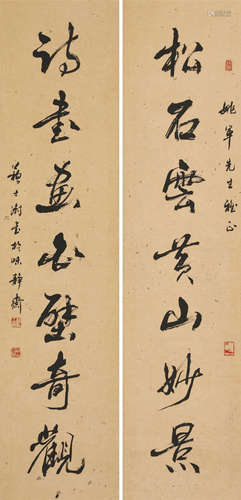 松石雲黄山妙景
姚軍先生雅正
詩書畫石壁奇觀
蘇士澍書於味静齋